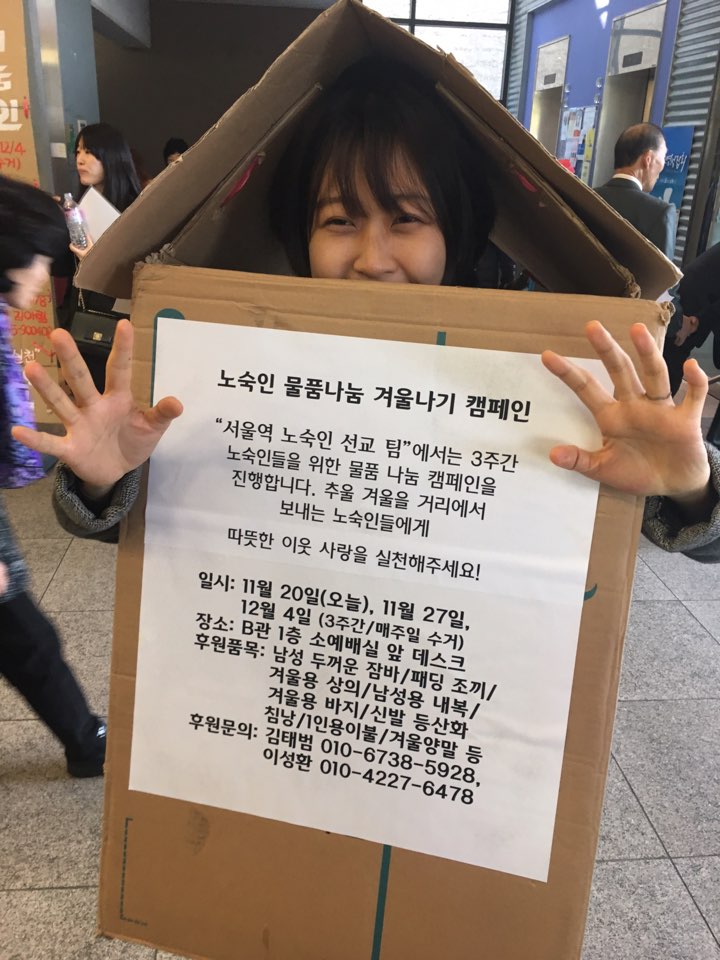 노숙인 물품나눔 겨울나기 캠페인
“서울역 노숙인 선교 팀”에서는 3주간
노숙인들을 위한 물품 나눔 캠페인을
진행합니다. 추울 겨울을 거리에서
보내는 노숙인들에게
따뜻한 이웃 사랑을 실천해주세요!
일시: 11월 20일(오늘), 11월 27일,
12월 4일 (3주간/매주일 수거)
장소: B관 1층 소예배실 앞 데스크
후원품목: 남성 두꺼운 잠바/패딩 조끼/
겨울용 상의/남성용 내복/
겨울용 바지/신발 등산화
침낭/1인용이불/겨울양말 등
후원문의: 김태범 010-6738-5928,
이성환 010-4227-6478